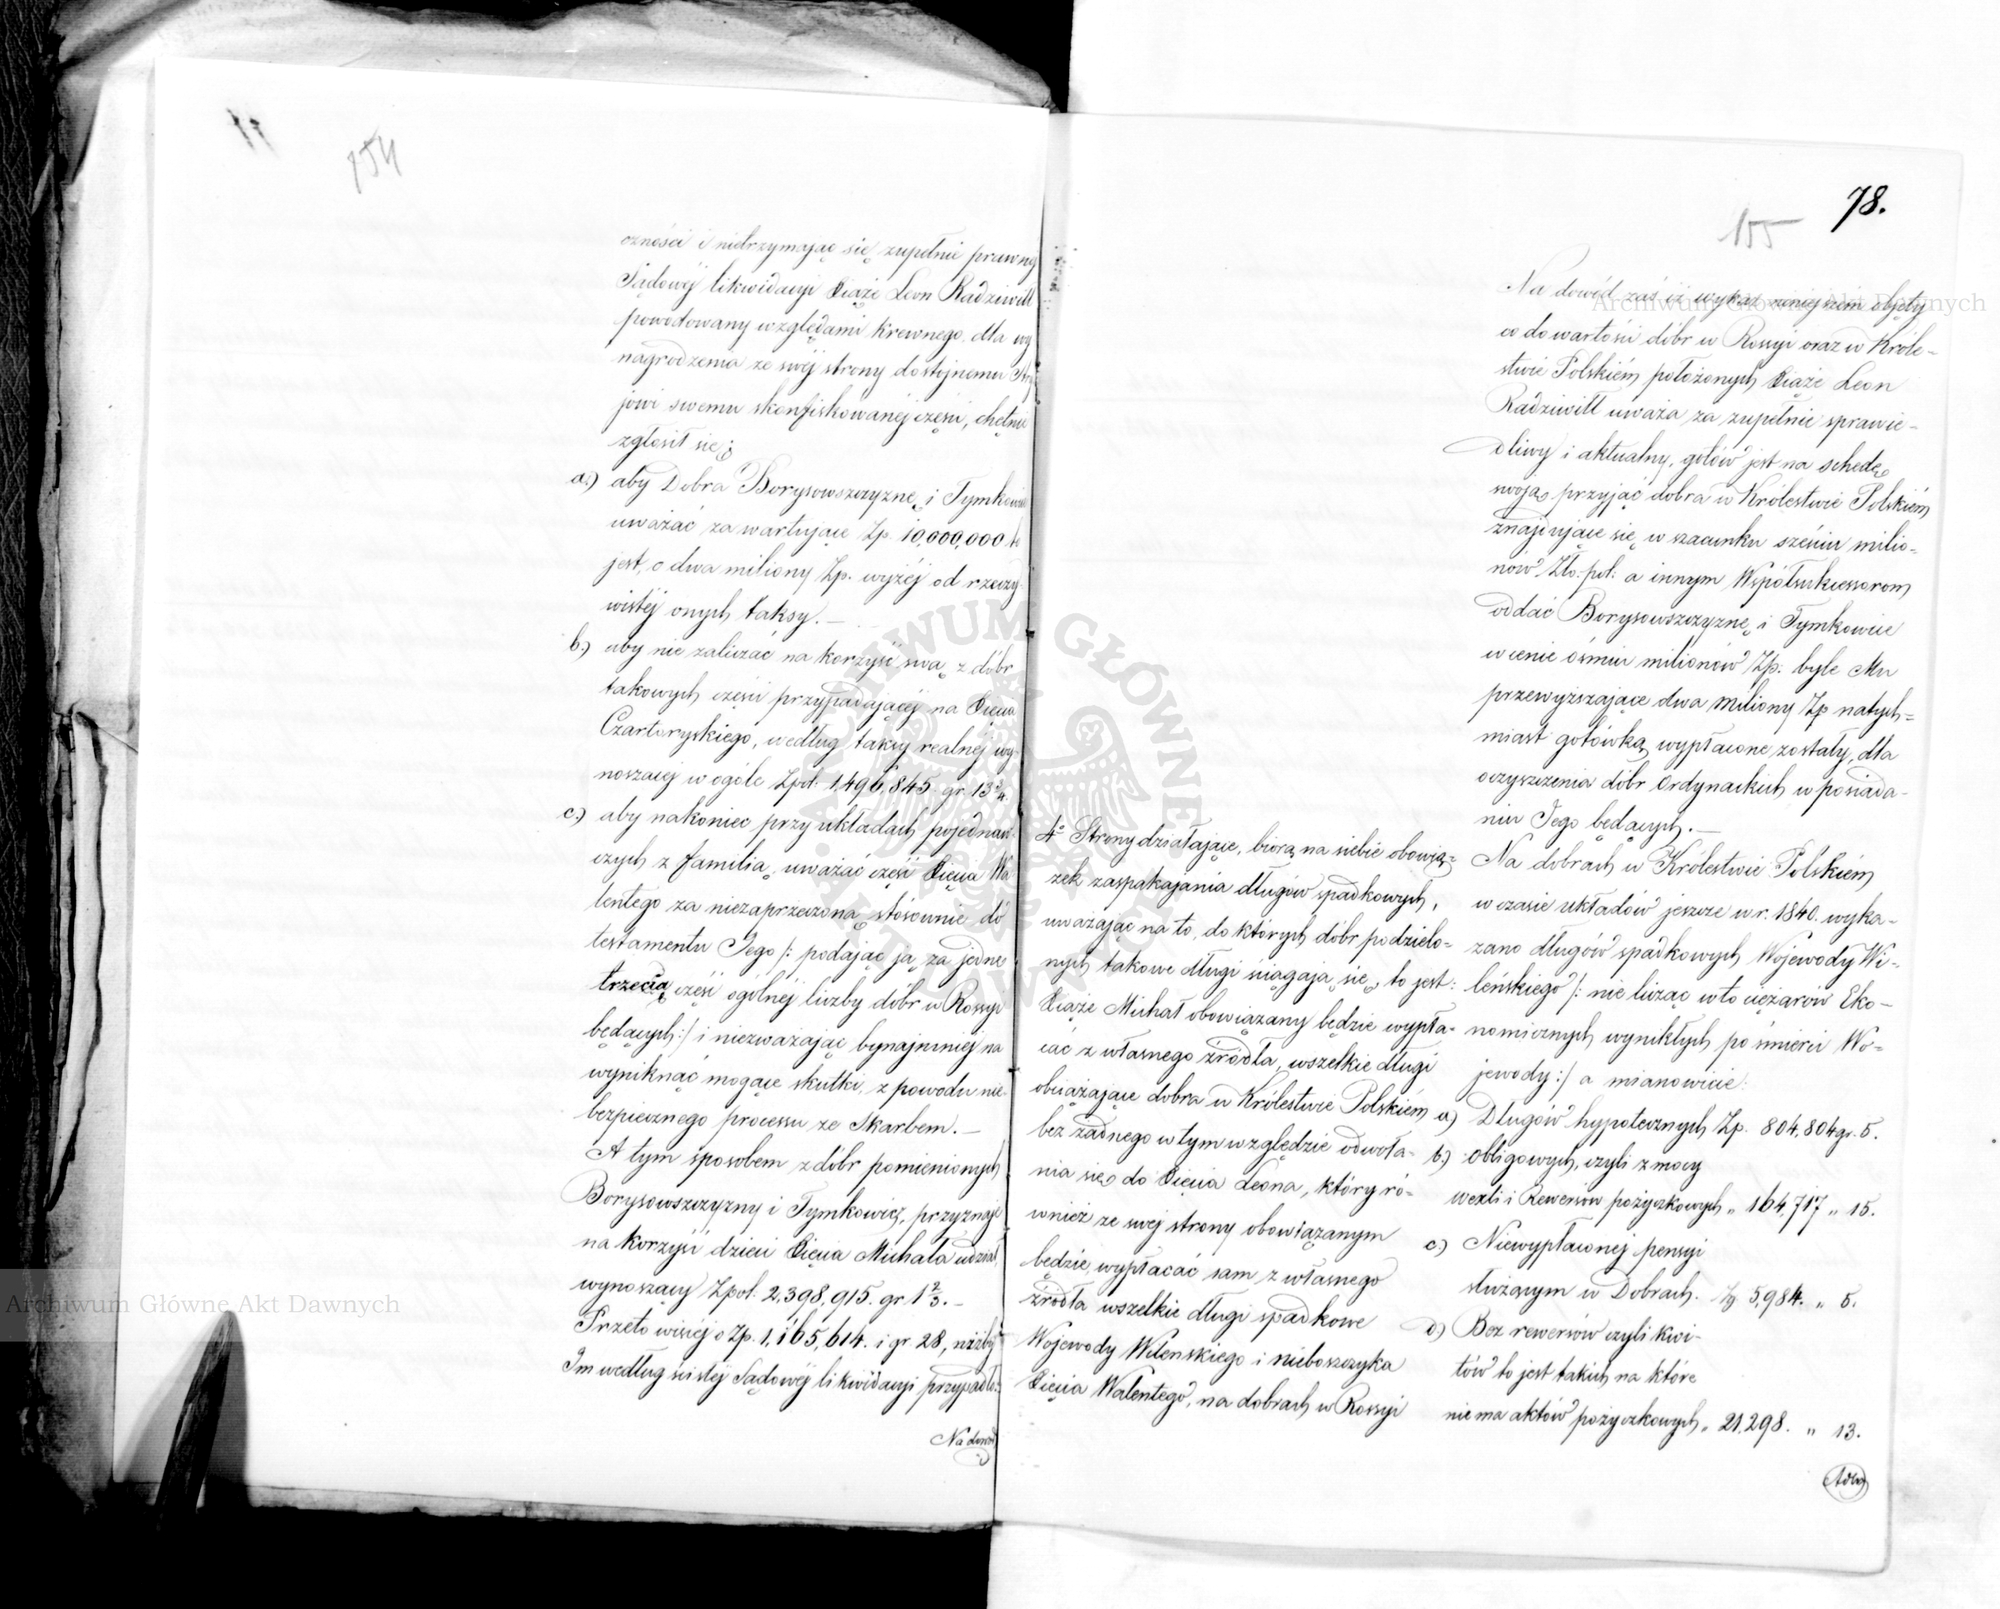 154
czności i nietrzymając się zupełnie prawnej
Sądowej likwidacyi Xiąże Leon Radziwiłł
powodowany względami krewnego, dla wy
nagrodzenia ze swej strony dostojnemu Stry
jowi swemu skonfiskowanéj części, chętnie
zgłosił się;
a.) aby Dobra Borysowszczyznę i Tymkowicze
uważać za wartujące Zp. 10,000,000 to
jest, o dwa miliony Zp. wyżéj od rzeczy
wistéj onych taksy. —
b.) aby nie zaliczać na korzyść swą z dóbr
takowych części przypadającéj na Xięcia
Czartoryskiego, według taksy realnéj wy
noszącej w ogóle Zpol: 1,496,845 gr 13 3/4.
c.) aby nakoniec przy układach pojednaw
czych z familią, uważać część Xięcia Wa
lentego za niezaprzeczoną stósownie do
testamentu Jego /: podając ją za jedne
trzecią część ogólnéj liczby dóbr w Rossyi
będących:/ i niezważając bynajmniéj na
wyniknąć mogące skutki, z powodu nie
bezpiecznego processu ze Skarbem. —
A tym sposobem z dóbr pomienionych
Borysowszczyzny i Tymkowicz, przyznaje
na korzyść dzieci Xięcia Michała udział
wynoszący Zpol. 2,398,915. gr 1 2/3. —
Przeto więcéj o Zp. 1,165,614. i gr 28, niżby
Im według ścisłéj Sądowéj likwidacyi przypadło.
Na dowód
78.
155
4o Strony działające, biorą na siebie obowią=
zek zaspakajania długów spadkowych,
uważając na to, do których dóbr podzielo=
nych takowe długi ściągają się, to jest:
Xiąże Michał obowiązany będzie wypła=
cać z własnego źródła, wszelkie długi
obciążające dobra w Królestwie Polskiém
bez żadnego w tym względzie odwoła=
nia się do Xięcia Leona, który ró=
wnież ze swej strony obowiązanym
będzie, wypłacać sam z własnego
źródła wszelkie długi spadkowe
Wojewody Wileńskiego i nieboszczyka
Xięcia Walentego, na dobrach w Rossyi
Na dowód zaś iż wykaz niniejszém objęty
co do wartości dóbr w Rossyi oraz w Króle=
stwie Polskiém położonych Xiąże Leon
Radziwiłł uważa za zupełnie sprawie=
dliwy i aktualny, gotów jest na schedę
swoją przyjąć dobra w Królestwie Polskiém
znajdujące się w szacunku sześciu milio=
nów Zło: pol: a innym Współsukcessorom
oddać Borysowszczyznę i Tymkowicze
w cenie ośmiu milionów Zp: byle Mu
przewyższające dwa miliony Zp natych=
miast gotówką wypłacone zostały, dla
oczyszczenia dóbr Ordynackich w posiada=
niu Jego będących. —
Na dobrach w Królestwie Polskiém
w czasie układów jeszcze w r. 1840. wyka=
zano długów spadkowych Wojewody Wi=
leńskiego /: nie licząc w to ciężarów Eko=
nomicznych wynikłych po śmierci Wo=
jewody:/ a mianowicie:
a) Długów hypotecznych Zp. 804,804 gr. 5.
b.) Obligowych, czyli z mocy
wexli i Rewersów pożyczkowych „ 164,717 „ 15.
c.) Niewypłaconej pensyi
służącym w Dobrach. Zp 5,984. „ 5.
d) Bez rewersów czyli kwi=
tów to jest takich na które
nie ma aktów pożyczkowych „ 21,298. „ 13.
Archiwum Główne Akt Dawnych
Archiwum Główne Akt Dawnych